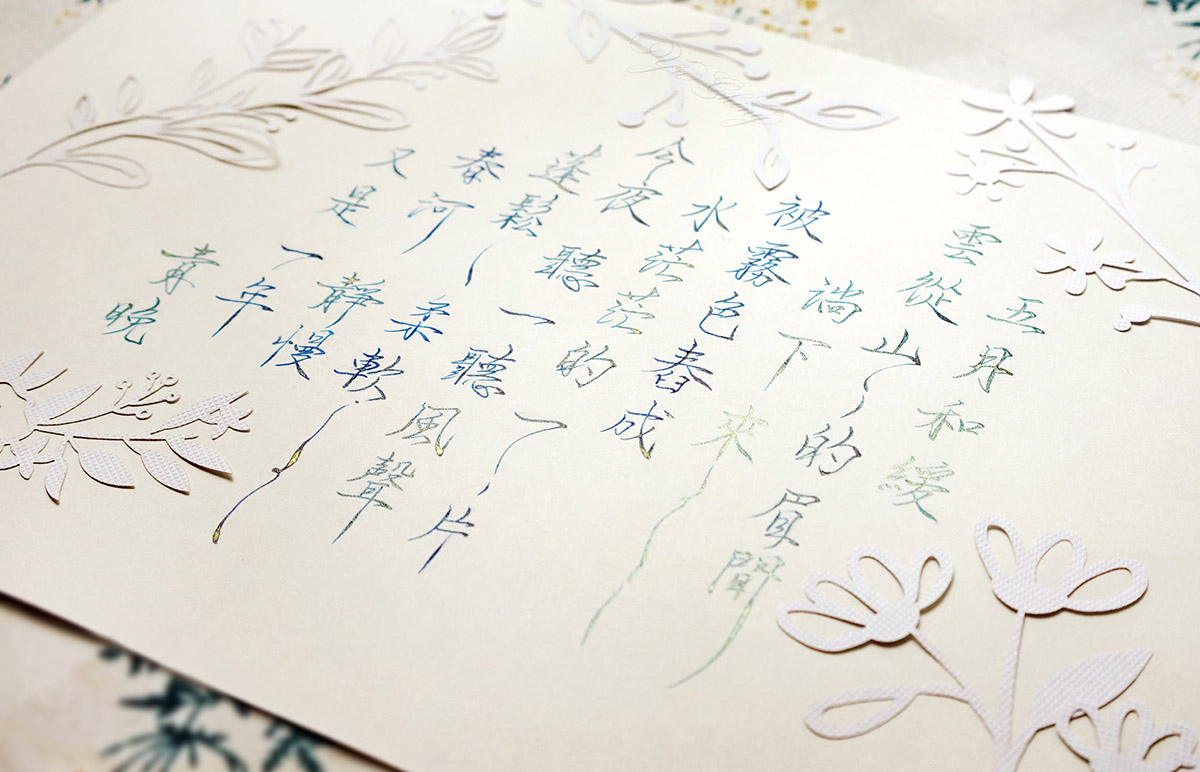 五月和緩
雲從山的眉間
淌下來
被霧色舂成
水茫茫的一片
今夜聽一聽風聲
蓬鬆柔軟
春河靜慢
又是一年
青晚